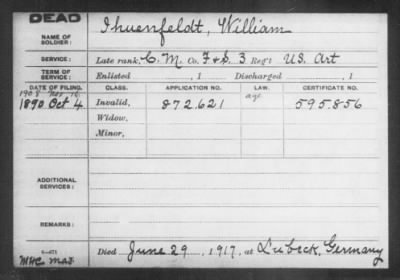 DEAD
NAME OF SOLDIER: Thuenfeldt, William
SERVICE: Late rank, C. M. Co. F+S. 3 Reg't U.S. Art
TERM OF SERVICE: Enlisted , 1 Discharged , 1
DATE OF FILING. CLASS. APPLICATION NO. LAW. CERTIFICATE NO.
1908 Nov. 16 age
1890 Oct 4 Invalid, 872.621 595.856
Widow,
Minor,
ADDITIONAL SERVICES:
REMARKS:
Died June 29, 1917, at Lubeck, Germany